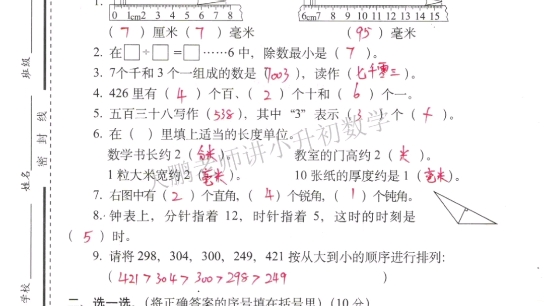 1.
0 1cm2 3 4 5 6 7 8 9
6cm7 8 9 10 11 12 13 14 15
( 7 ) 厘米 ( 7 ) 毫米 ( 95 ) 毫米
2. 在□÷□=□……6 中，除数最小是 ( 7 )。
3. 7个千和 3 个一组成的数是 ( 7003 )，读作 ( 七千零三 )。
4. 426 里有 ( 4 ) 个百、( 2 ) 个十和 ( 6 ) 个一。
5. 五百三十八写作 ( 538 )，其中 “3” 表示 ( 3 ) 个 ( 十 )。
6. 在 ( ) 里填上适当的长度单位。
数学书长约 2 ( 分米 ) 教室的门高约 2 ( 米 )。
1 粒大米宽约 2 ( 毫米 )。 10 张纸的厚度约是 1 ( 毫米 )。
7. 右图中有 ( 2 ) 个直角，( 4 ) 个锐角，( 1 ) 个钝角。
8. 钟表上，分针指着 12，时针指着 5，这时的时刻是
( 5 ) 时。
9. 请将 298、304、300、249、421 按从大到小的顺序进行排列:
( 421 > 304 > 300 > 298 > 249 )
二、选一选。(将正确答案的序号填在括号里) (10 分)
班级
姓名
学校
密 封 线
大鹏老师讲小升初数学